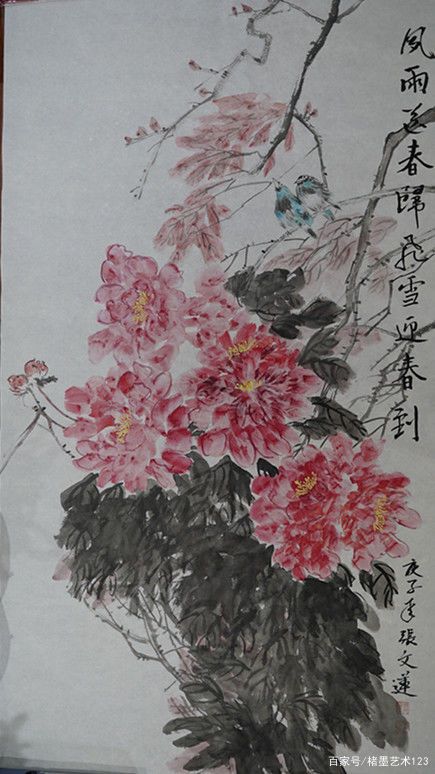 風雨送春歸飛雪迎春到
庚子年張文蓮
百家号/楮墨艺术123